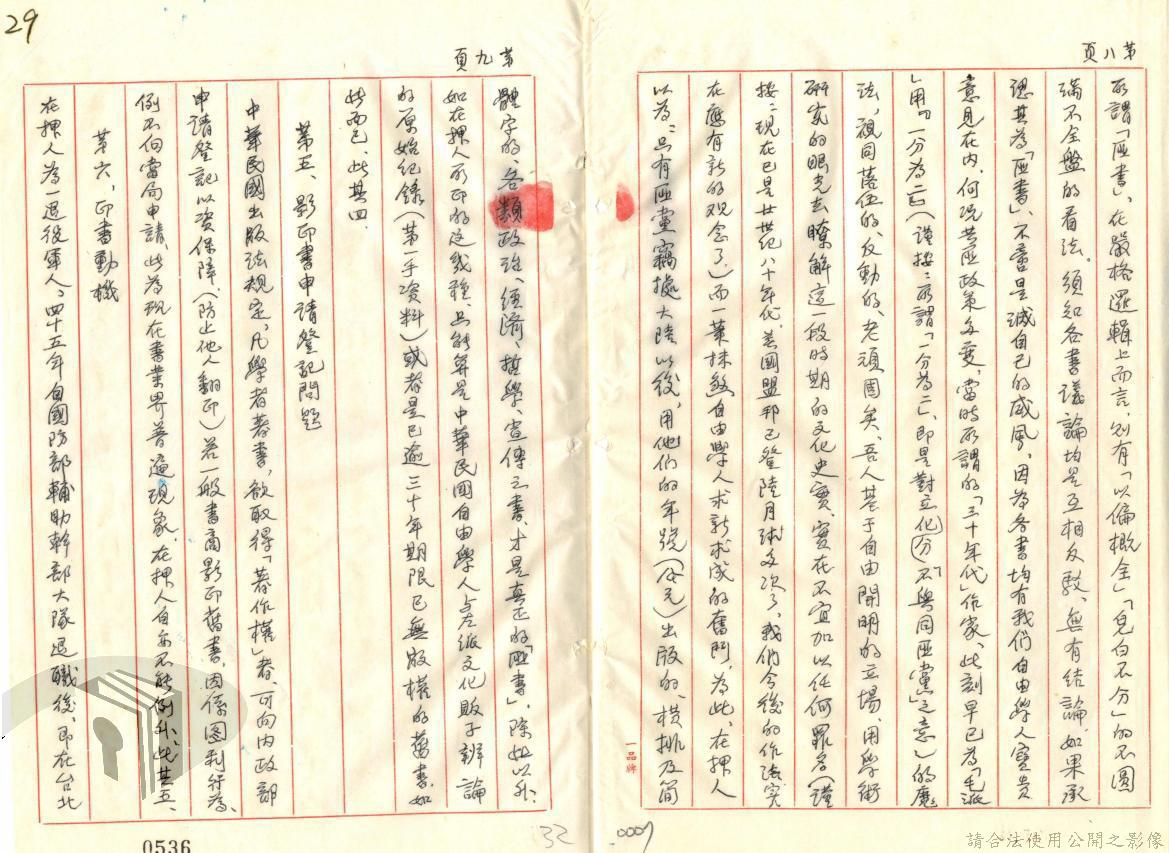 29
第八頁
所謂「匪書」，在嚴格邏輯上而言，別有「以偏概全」「皂白不分」的不圓
滿不全盤的看法。須知各書議論均是互相反駁、無有結論，如果承
認其為「匪書」、不啻是滅自己的威風，因為各書均有我們自由學人寶貴
意見在內，何況共匪政策多變，當時所謂的「三十年代」作家、此刻早已為「毛派
」用「一分為二」（謹按：所謂「一分為二」即是對立化分「不與同匪黨」之意）的魔
法，視同落伍的、反動的、老頑固矣、吾人基于自由開明的立場、用學術
研究的眼光去瞭解這一段時期的文化史實、實在不宜加以任何罪名（謹
按：現在已是廿世紀八十年代、美國盟邦已登陸月球多次了、我們今後的作法實
在應有新的观念了）而一葉抹煞自由學人求新求成的奮鬥，為此、在押人
以為：只有匪黨竊據大陸以後，用他們的年號（公元）出版的、橫排及簡
一品牌
.0009
第九頁
體字的、各類政政、經濟、哲學、宣傳之書、才是真正的「匪書」，除此以外、
如在押人所印的這幾種、只能算是中華民國自由學人与左派文化販子辨論
的原始紀錄（第一手資料）或者是已逾三十年期限已無版權的舊書、如
此而已、此其四
第五、影印書申請登記問題
中華民國出版法規定，凡學者著書，欲取得「著作權」者、可向內政部
申請登記以資保障、（防止他人翻印）若一般書商影印舊書、因係圖利行為
例不向當局申請、此為現在書業界普遍現象、在押人自亦不能例外、此其五、
第六，印書動機
在押人為一退役軍人，四十五年自國防部輔助幹部大隊退職後，即在台北
0536
32
請合法使用公開之影像